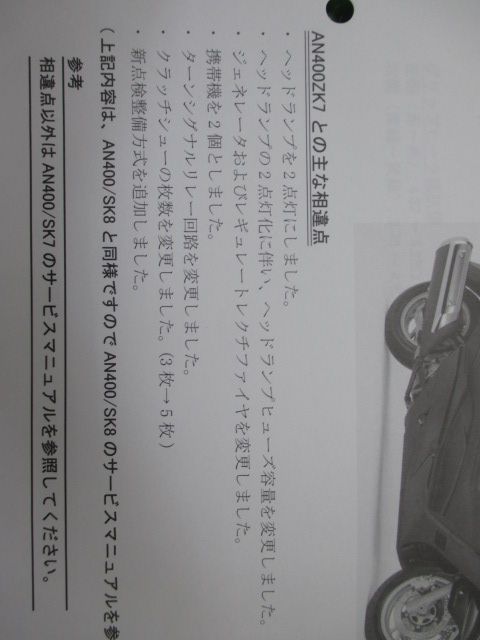 AN400ZK7 との主な相違点
・ヘッドランプを2点灯にしました。
・ヘッドランプの2点灯化に伴い、ヘッドランプヒューズ容量を変更しました。
・ジェネレータおよびレギュレートレクチファイヤを変更しました。
・携帯機を2個としました。
・ターンシグナルリレー回路を変更しました。
・クラッチシューの枚数を変更しました。(3枚→5枚)
・新点検整備方式を追加しました。
(上記内容は、AN400/SK8 と同様ですので AN400/SK8 のサービスマニュアルを参
参考
相違点以外は AN400/SK7 のサービスマニュアルを参照してください。